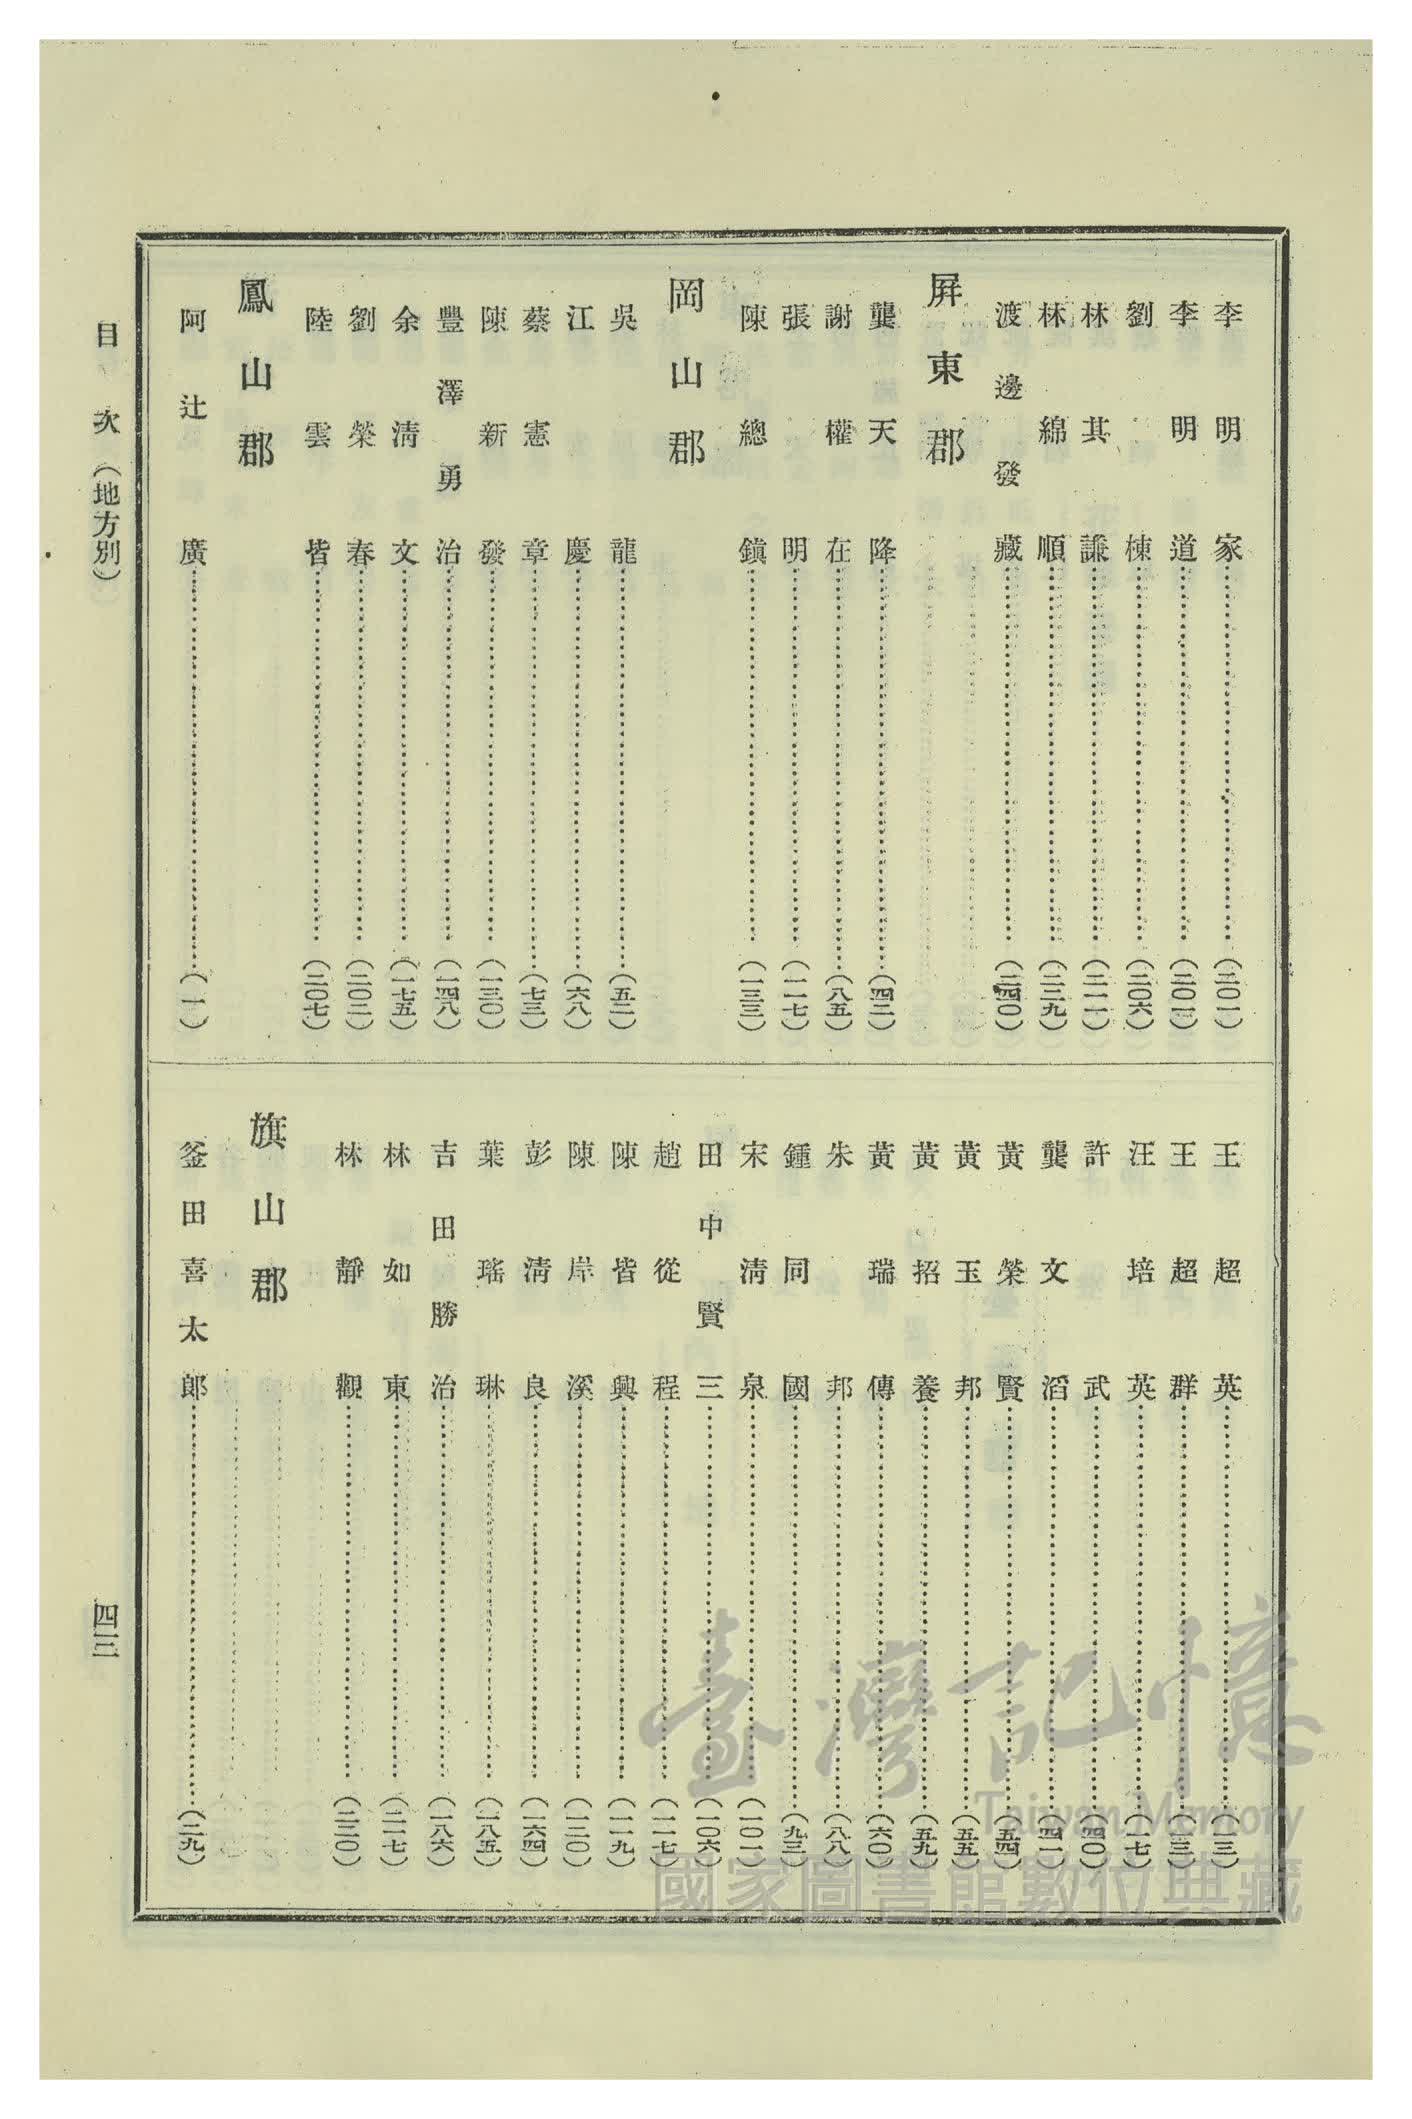 李明家(二〇一)
李明道(二〇一)
劉棟(二〇六)
林其謙(二一一)
林綿順(二二九)
渡邊發藏(二四〇)
屏東郡
龔天降(四二)
謝權在(八五)
張明(一一七)
陳總鎭(一三三)
岡山郡
吳龍(五二)
江慶(六八)
蔡憲章(七三)
陳新發(一三〇)
豐澤勇治(一四八)
余清文(一七五)
劉榮春(二〇二)
陸雲皆(二〇七)
鳳山郡
阿辻廣(一)
王超英(一三)
王超群(一三)
汪培英(一七)
許武(四〇)
龔文滔(四一)
黃榮賢(五四)
黃玉邦(五五)
黃招養(五九)
黃瑞傳(六〇)
朱邦(八八)
鍾同國(九三)
宋清泉(一〇一)
田中賢三(一〇六)
趙從程(一一七)
陳皆興(一一九)
陳岸溪(一二〇)
彭清良(一六四)
葉瑤琳(一八五)
吉田勝治(一八六)
林如東(二一七)
林靜觀(二二〇)
旗山郡
釜田喜太郎(二九)
目次(地方別)
四三
臺灣記憶
Taiwan Memory
國家圖書館數位典藏